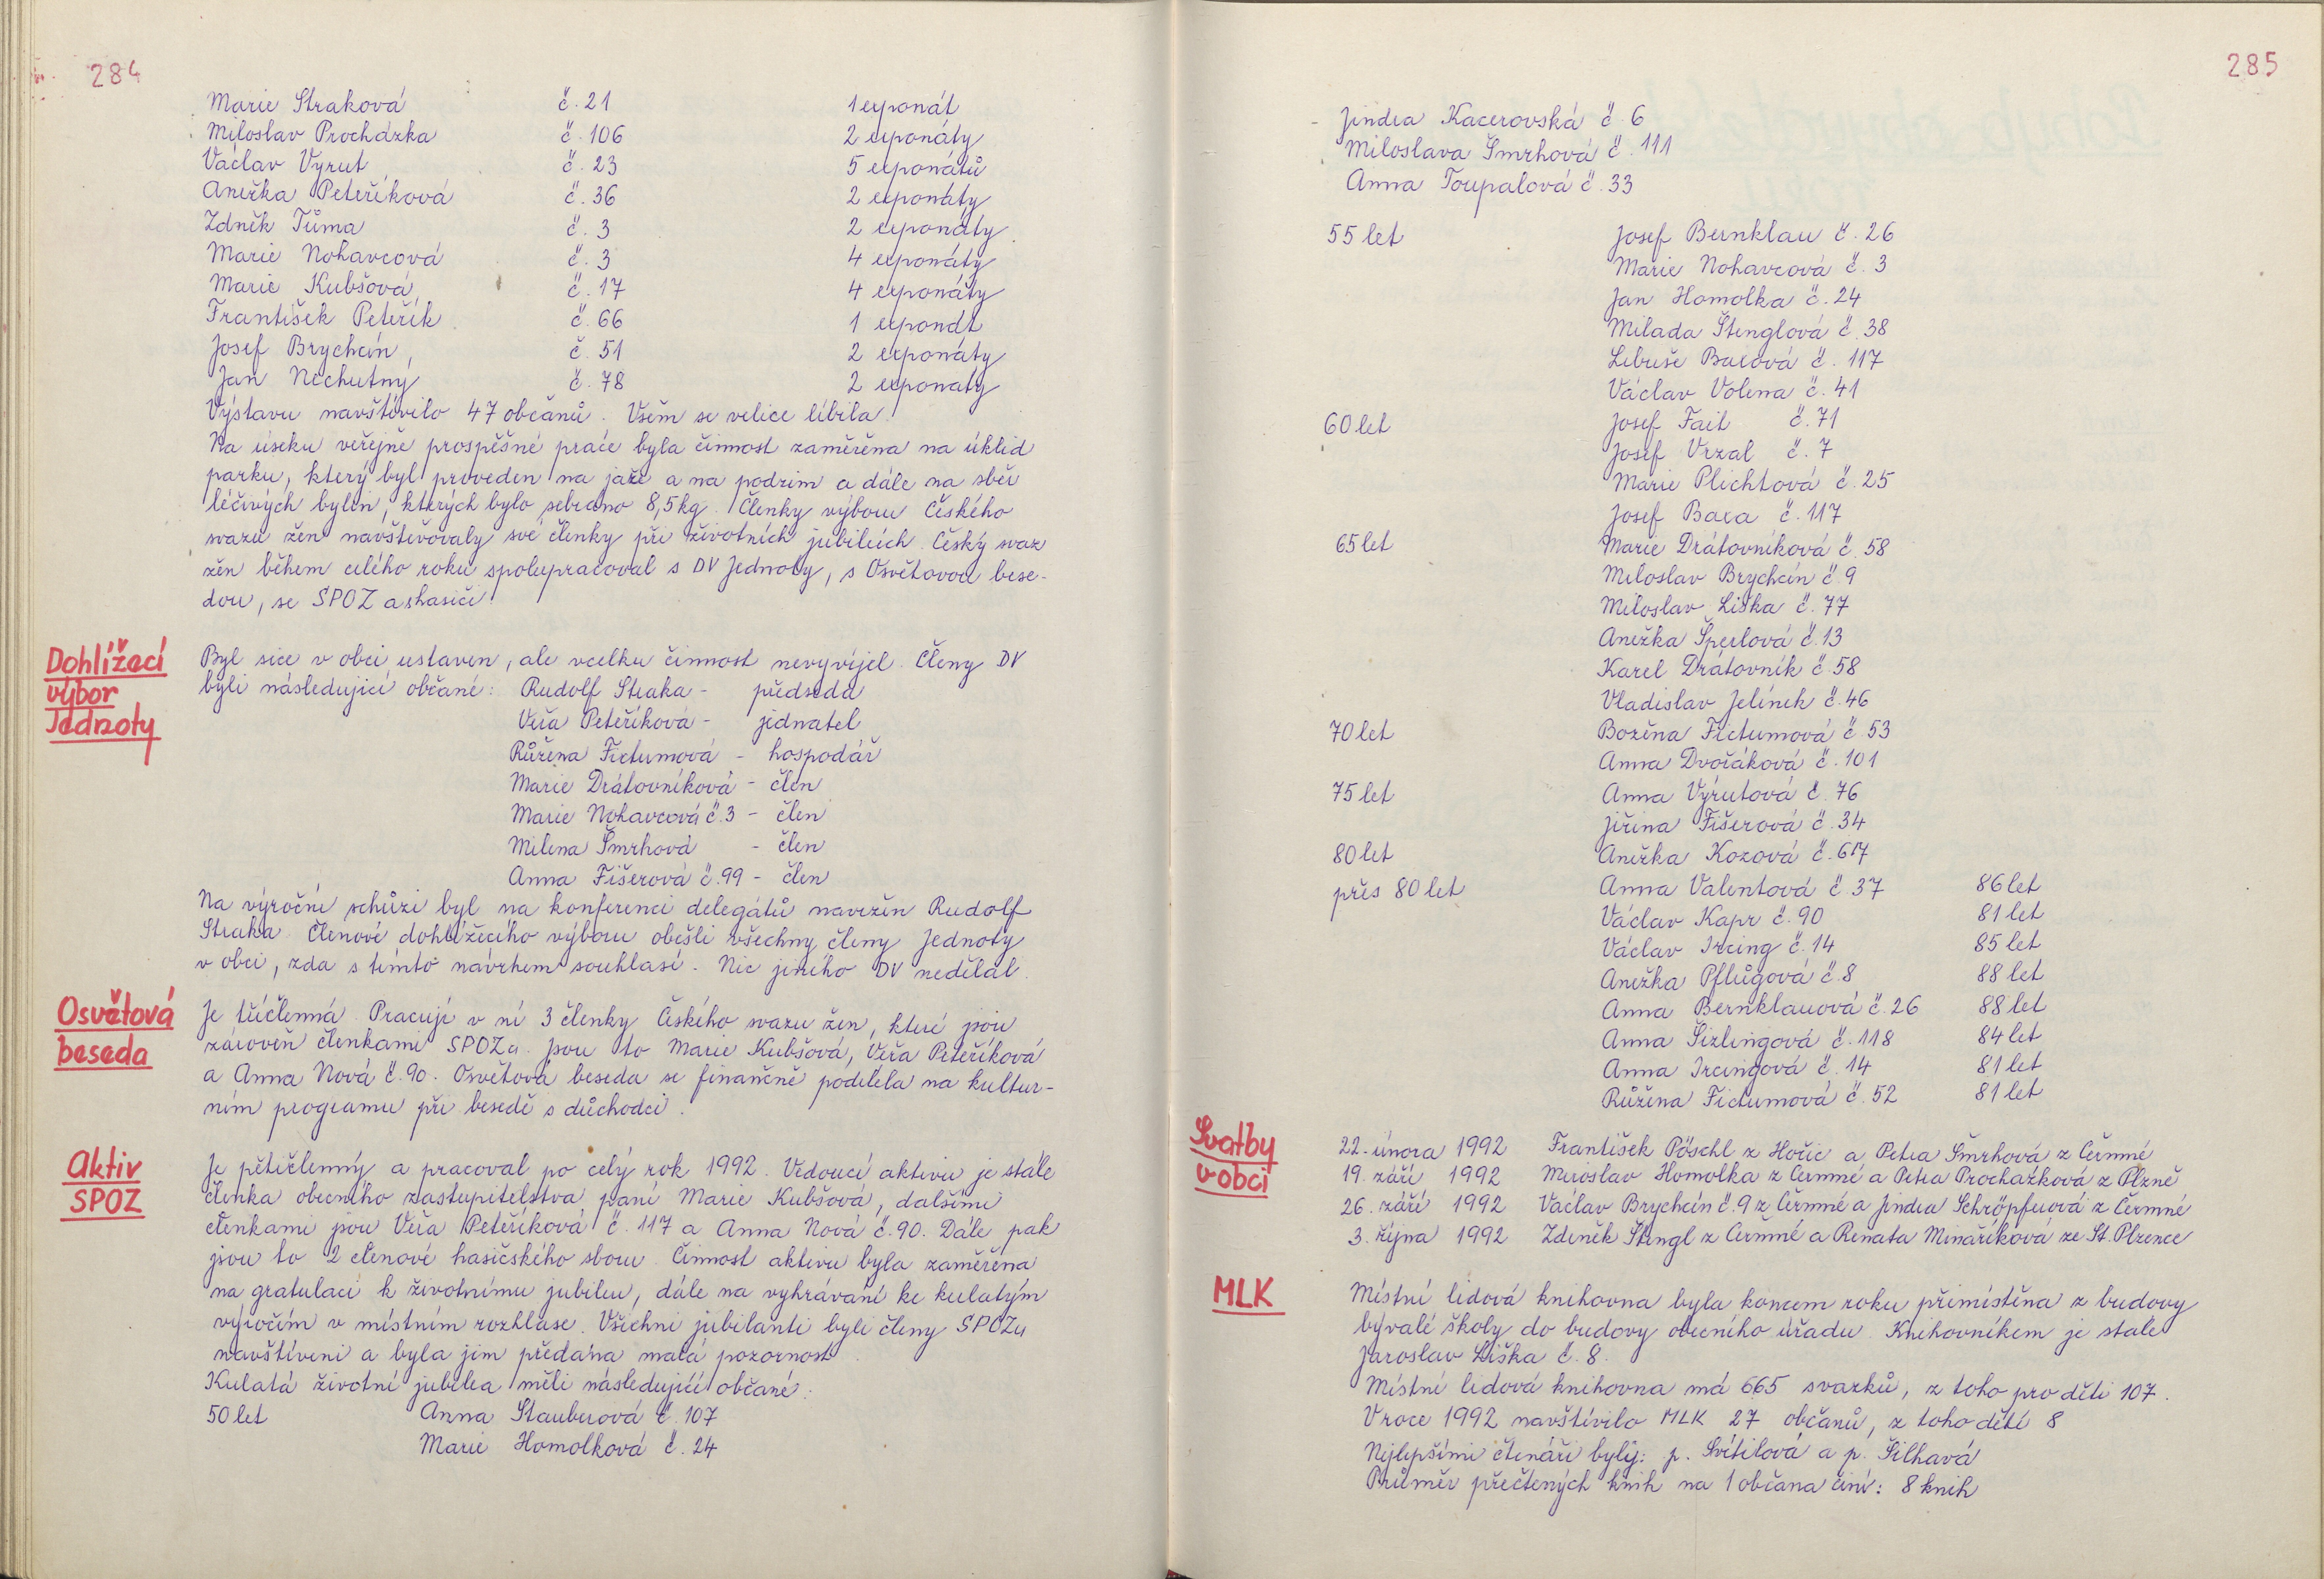 284
Marie Straková č. 21 1 exponát
Miloslav Procházka č. 106 2 exponáty
Václav Vyrut č. 23 5 exponátů
Anežka Peteříková č. 36 2 exponáty
Zdněk Tůma č. 3 2 exponáty
Marie Nohavcová č. 3 4 exponáty
Marie Kubšová č. 17 4 exponáty
František Peteřík č. 66 1 exponát
Josef Brychcín, č. 51 2 exponáty
Jan Nechutný č. 78 2 exponaty
Výstavu navštívilo 47 občanů. Všem se velice líbila.
Na úseku veřejně prospěšné práce byla činnost zaměřena na úklid
parku, který byl proveden na jaře a na podzim a dále na sběr
léčivých bylin, kterých bylo sebráno 8,5 kg. Členky výboru Českého
svazu žen navštěvovaly své členky při životních jubileích. Český svaz
žen během celého roku spolupracoval s DV Jednoty, s Osvětovou bese-
dou, se SPOZ a s hasiči.
Dohlížecí
výbor
Jednoty
Byl sice v obci ustaven, ale vcelku činnost nevyvíjel. Členy DV
byli následující občané: Rudolf Straka - předseda
Věra Peteříková - jednatel
Růžena Fictumová - hospodář
Marie Drátovníková - člen
Marie Nohavcová č. 3 - člen
Milena Šmrhová - člen
Anna Fišerová č. 99 - člen
Na výroční schůzi byl na konferenci delegátů navržen Rudolf
Straka. Členové dohlížecího výboru obešli všechny členy Jednoty
v obci, zda s tímto návrhem souhlasí. Nic jiného DV nedělal.
Osvětová
beseda
Je tříčlenná. Pracují v ní 3 členky Českého svazu žen, které jsou
zároveň členkami SPOZu. Jsou to Marie Kubšová, Věra Peteříková
a Anna Nová č. 90. Osvětová beseda se finančně podílela na kultur-
ním programu při besedě s důchodci.
Aktiv
SPOZ
Je pětičlenný a pracoval po celý rok 1992. Vedoucí aktivu je stále
členka obecního zastupitelstva paní Marie Kubšová, dalšími
členkami jsou Věra Peteříková č. 117 a Anna Nová č. 90. Dále pak
jsou to 2 členové hasičského sboru. Činnost aktivu byla zaměřena
na gratulaci k životnímu jubileu, dále na vyhrávání ke kulatým
výročím v místním rozhlase. Všichni jubilanti byli členy SPOZu
navštíveni a byla jim předána malá pozornost.
Kulatá životní jubilea měli následující občané:
50 let Anna Stauberová č. 107
Marie Homolková č. 24
285
Jindra Kacerovská č. 6
Miloslava Šmrhová č. 111
Anna Toupalová č. 33
55 let Josef Bernklau č. 26
Marie Nohavcová č. 3
Jan Homolka č. 24
Milada Štenglová č. 38
Libuše Baxová č. 117
Václav Volena č. 41
60 let Josef Fait č. 71
Josef Vrzal č. 7
Marie Plichtová č. 25
Josef Baxa č. 117
65 let Marie Drátovníková č. 58
Miloslav Brychcín č. 9
Miloslav Liška č. 77
Anežka Šperlová č. 13
Karel Drátovník č. 58
Vladislav Jelínek č. 46
70 let Božena Fictumová č. 53
Anna Dvořáková č. 101
75 let Anna Výrutová č. 76
Jiřina Fišerová č. 34
80 let Anežka Kozová č.
přes 80 let Anna Valentová č. 37 86 let
Václav Kapr č. 90 81 let
Václav Ircing č. 14 85 let
Anežka Pflügová č. 8 88 let
Anna Bernklauová č. 26 88 let
Anna Šizlingová č. 118 84 let
Anna Ircingová č. 14 81 let
Růžena Fictumová č. 52 81 let
Svatby
v obci
22. února 1992 František Pöschl z Hořic a Petra Šmrhová z Čermné
19. září 1992 Miroslav Homolka z Čermné a Petra Procházková z Plzně
26. září 1992 Václav Brychcín č. 9 z Čermné a Jindra Schröpferová z Čermné
3. října 1992 Zdeněk Štengl z Čermné a Renata Minaříková ze St. Plzence
MLK
Místní lidová knihovna byla koncem roku přemístěna z budovy
bývalé školy do budovy obecního úřadu. Knihovníkem je stále
Jaroslav Liška č. 8.
Místní lidová knihovna má 665 svazků, z toho pro děti 107.
V roce 1992 navštívilo MLK 27 občanů, z toho dětí 8
Nejlepšími čtenáři byly: p. Svítilová a p. Šilhavá
Průměr přečtených knih na 1 občana činí: 8 knih